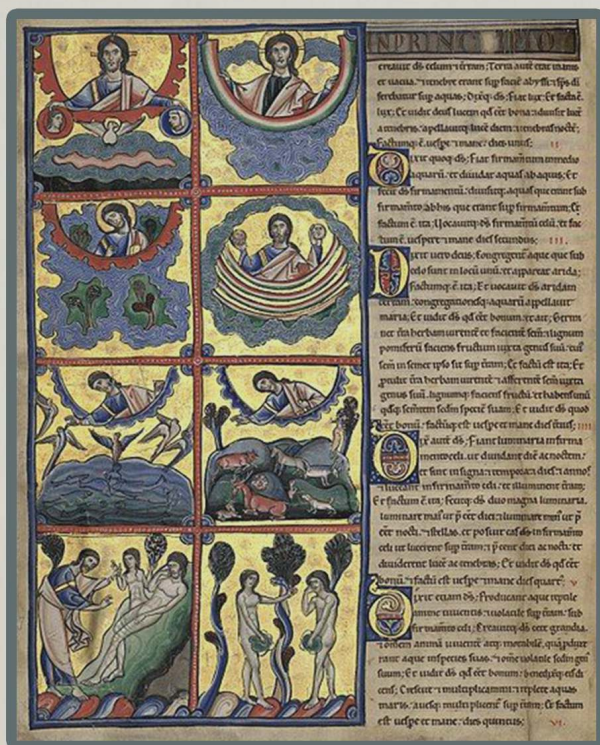 IN PRINCIPIO
creauit d̄s celum ⁊ t̄ram; Terra autē erat inanis
et uacua. ⁊ tenebre erant sup faciē abyssi. ⁊ sp̄s dī
ferebatur sup aquas; Dixitq; d̄s; Fiat lux; Et facta ē
lux; Et uidit deus lucem qd eēt bona; ⁊ diuisit lucē
a tenebris. appellauitq; lucē diem. ⁊ tenebras noctē;
Factumq; ē. uesp̄e ⁊ mane. dies unus; II
Dixit quoq; d̄s; Fiat firmam̄tum in medio
aquarū. et diuidat aquas ab aquis; Et
fecit d̄s firmamentū. diuisitq; aquas que erant sub
firmam̄to. ab his que erant sup firmam̄tum; Et
factum ē. ita; Vocauitq; d̄s firmam̄tum celū. et fac
tum ē. uespere ⁊ mane dies secundus; III.
Dixit uero deus; Congregent̄ aque que sub
celo sunt in locū unū. et appareat arida;
Factumq; ē. ita; Et uocauit d̄s aridam
terram. congregationesq; aquarū appellauit
maria; Et uidit d̄s qd eēt bonum. et ait; Germi
net t̄ra herbam uirentē et facientē sem̄. ⁊ lignum
pomiferū faciens fructum iuxta genus suū. cui'
sem̄ in semet ipso sit sup t̄ram; Et factū est ita; Et
protulit t̄ra herbam uirentē ⁊ afferentē sem̄ iuxta
genus suū. lignumq; faciens fructū. et habens unū
qdq; sem̄tem scdm speciē suam; Et uidit d̄s quod
eēt bonū. factūq; est uesp̄e et mane dies t̄cius; IIII
Dixit autē d̄s; Fiant luminaria in firma
mento celi. ut diuidant diem ac noctem.
et sint in signa. ⁊ tempora ⁊ dies ⁊ annos
⁊ luceant in firmam̄to celi. et illuminent t̄ram;
Et factum ē. ita; Fecitq; d̄s duo magna luminaria.
luminare mai' ut p̄eēt diei. ⁊ luminare min' ut p̄
eēt nocti. ⁊ stellas. et posuit eas d̄s in firmam̄to
celi ut lucerent sup t̄ram. ⁊ p̄eent diei ac nocti. et
diuiderent lucē ac tenebras; Et uidit d̄s qd eēt
bonū. ⁊ factū est uesp̄e ⁊ mane dies quart'; V
Dixit etiam d̄s; Producant aque reptile
anime uiuentis ⁊ uolatile sup t̄ram. sub
firmam̄to celi; Creauitq; d̄s cete grandia.
⁊ omem animā uiuentē atq; motabilē. quā pdux
erant aque in species suas. ⁊ om̄e uolatile scdm gen'
suum; Et uidit d̄s qd eēt bonum. benedixitq; eis di
cens; Crescite ⁊ multiplicamini. ⁊ replete aquas
maris. auesq; multiplicent̄ sup t̄ram; Et factum
est uesp̄e et mane. dies quintus; VI.